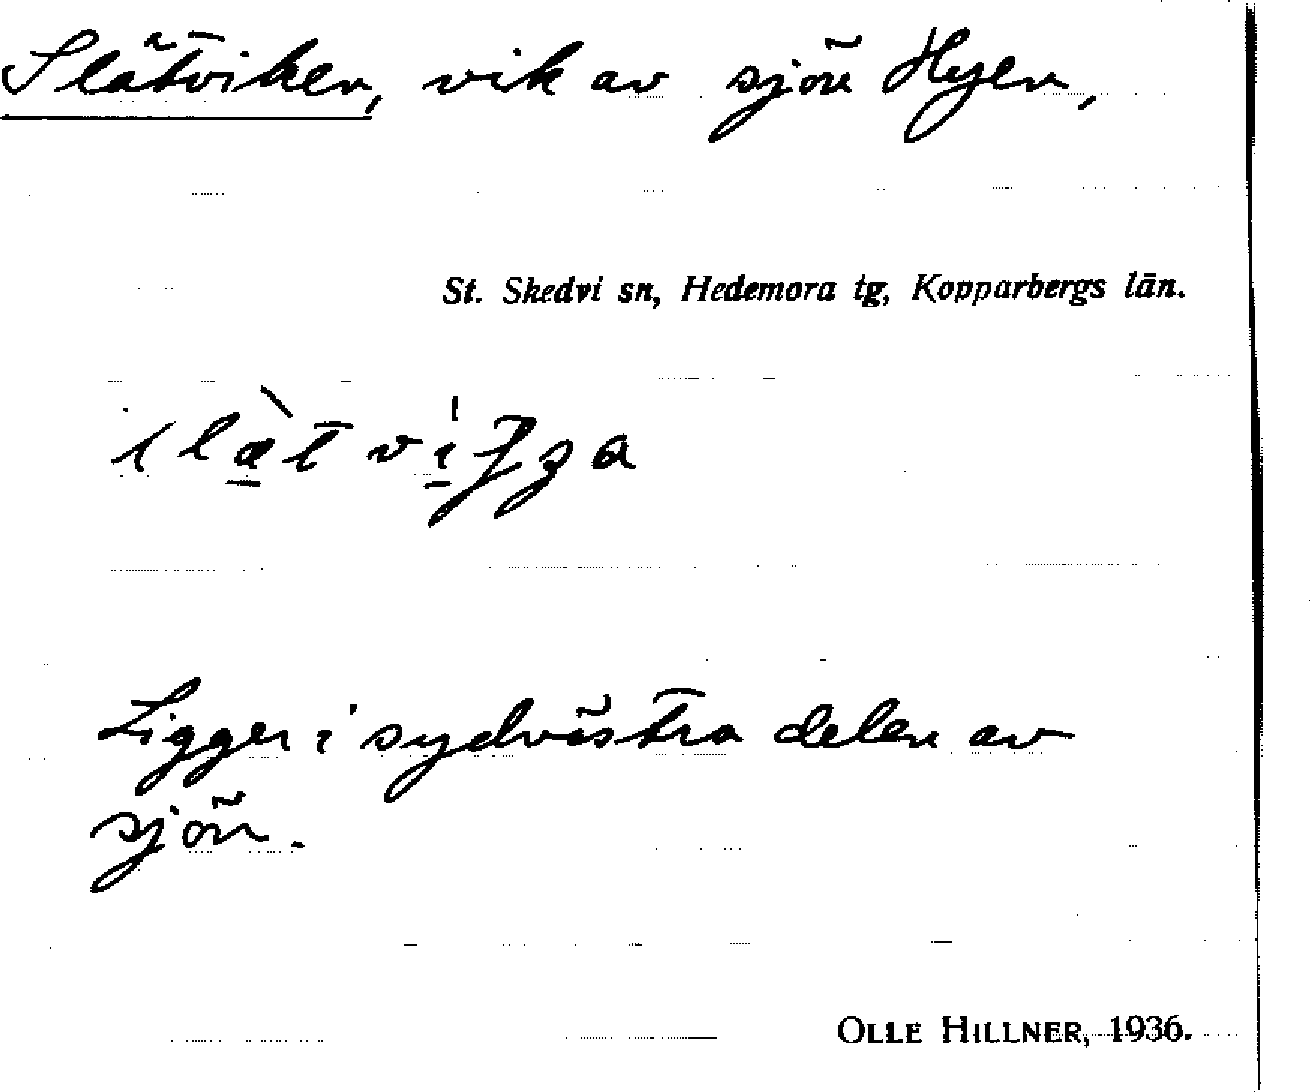 Slätviken, vik av sjön Hyen,
St. Skedvi sn, Hedemora tg, Kopparbergs län.
Ligger i sydvästra delen av
sjön.
OLLE HILLNER, 1936.